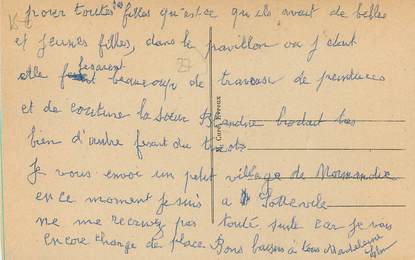 toutes filles qu'est ce qu'ils avait de belles
et jeunes filles, dans le pavillon ou j etait
elle fesaient beaucoup de travaux de peintures
et de couture la soeur Blandine brodait tres
bien d'autre fesant du tricot
Je vous envoi un petit village de Normandie
en ce moment je suis a Sotteville
ne me recrivez pas toute suite car je vais
encore changé de place. Bons baisers à tous Madeleine
27